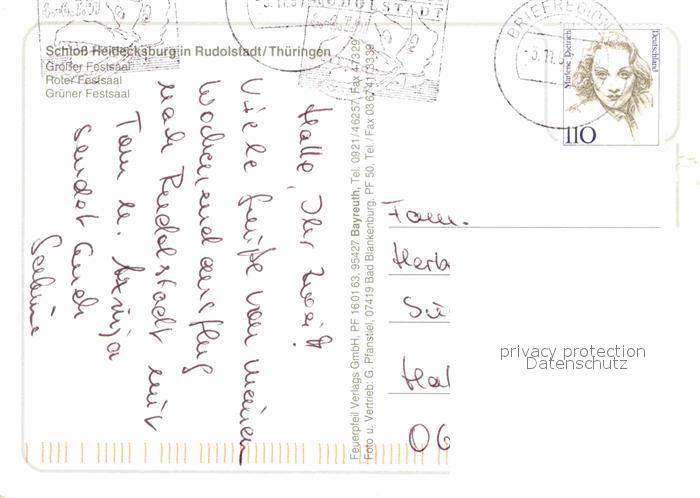 Schloß Heidecksburg in Rudolstadt/Thüringen
Großer Festsaal
Roter Festsaal
Grüner Festsaal
RUDOLSTADT
BRIEFREGION
-3.11.9
Marlene Dietrich
Deutschland
110
Hallo, Ihr zwei!
Viele Grüße von meinem
Wochenendausflug
nach Rudolstadt mit
Tom u.
sendet Euch
Sabine
Feuerpfeil Verlags GmbH, PF 160163, 95427 Bayreuth, Tel. 0921/46257, Fax 47329
Foto u. Vertrieb: G. Pfanstiel, 07419 Bad Blankenburg, PF 50, Tel./Fax 036741/3339
Fam.
Herb
Sü
Hal
06
privacy protection
Datenschutz